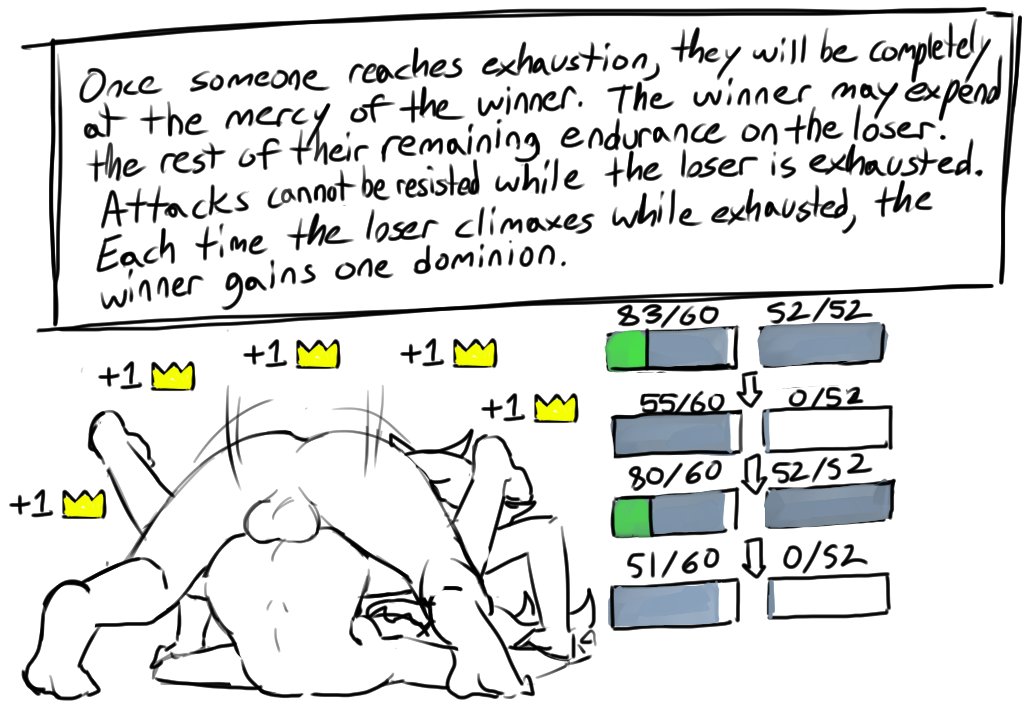 Once someone reaches exhaustion, they will be completely
at the mercy of the winner. The winner may expend
the rest of their remaining endurance on the loser.
Attacks cannot be resisted while the loser is exhausted.
Each time the loser climaxes while exhausted, the
winner gains one dominion.
83/60 52/52
+1 +1 +1
+1
55/60 0/52
80/60 52/52
+1
51/60 0/52